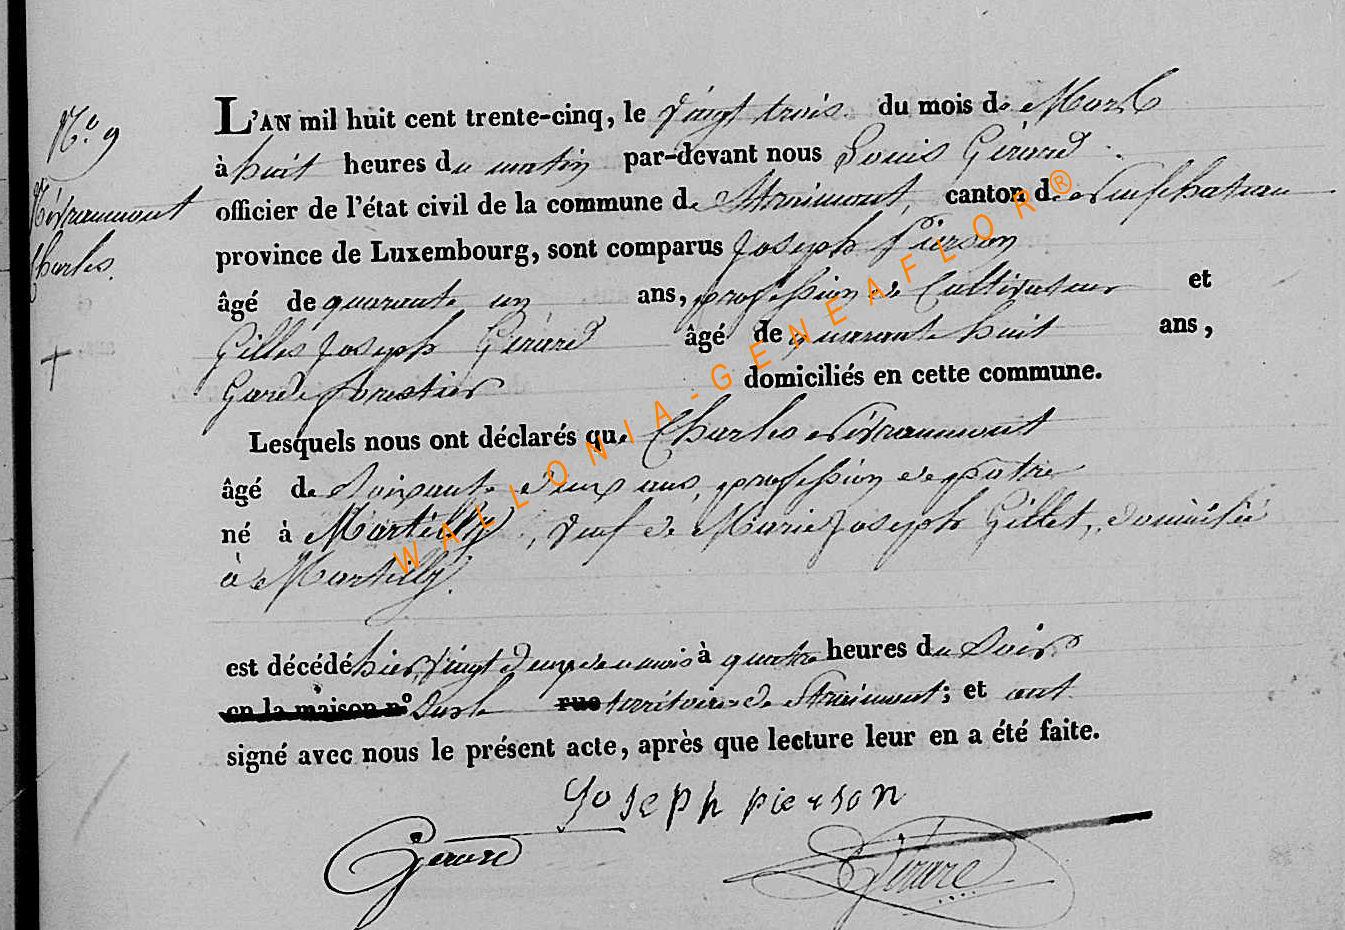 N.º 9
Névraumont
Charles.
L'AN mil huit cent trente-cinq, le vingt trois du mois de Mars
à huit heures du matin par-devant nous Louis Gérard
officier de l'état civil de la commune de Straimont, canton de Neufchateau
province de Luxembourg, sont comparus Joseph Pierson
âgé de quarante un ans, profession de Cultivateur et
Gilles Joseph Gérard âgé de quarante huit ans,
Garde forestier domiciliés en cette commune.
Lesquels nous ont déclarés que Charles Névraumont
âgé de Soixante deux ans, profession de patre
né à Martilly, veuf de Marie Joseph Gillet, domicilié
à Martilly.
est décédé hier vingt deux du mois à quatre heures du Soir
en la maison nº Sur le rue territoire de Straimont; et ont
signé avec nous le présent acte, après que lecture leur en a été faite.
Joseph pierson
Gerard
LGerard
WALLONIA-GENEAFLOR®